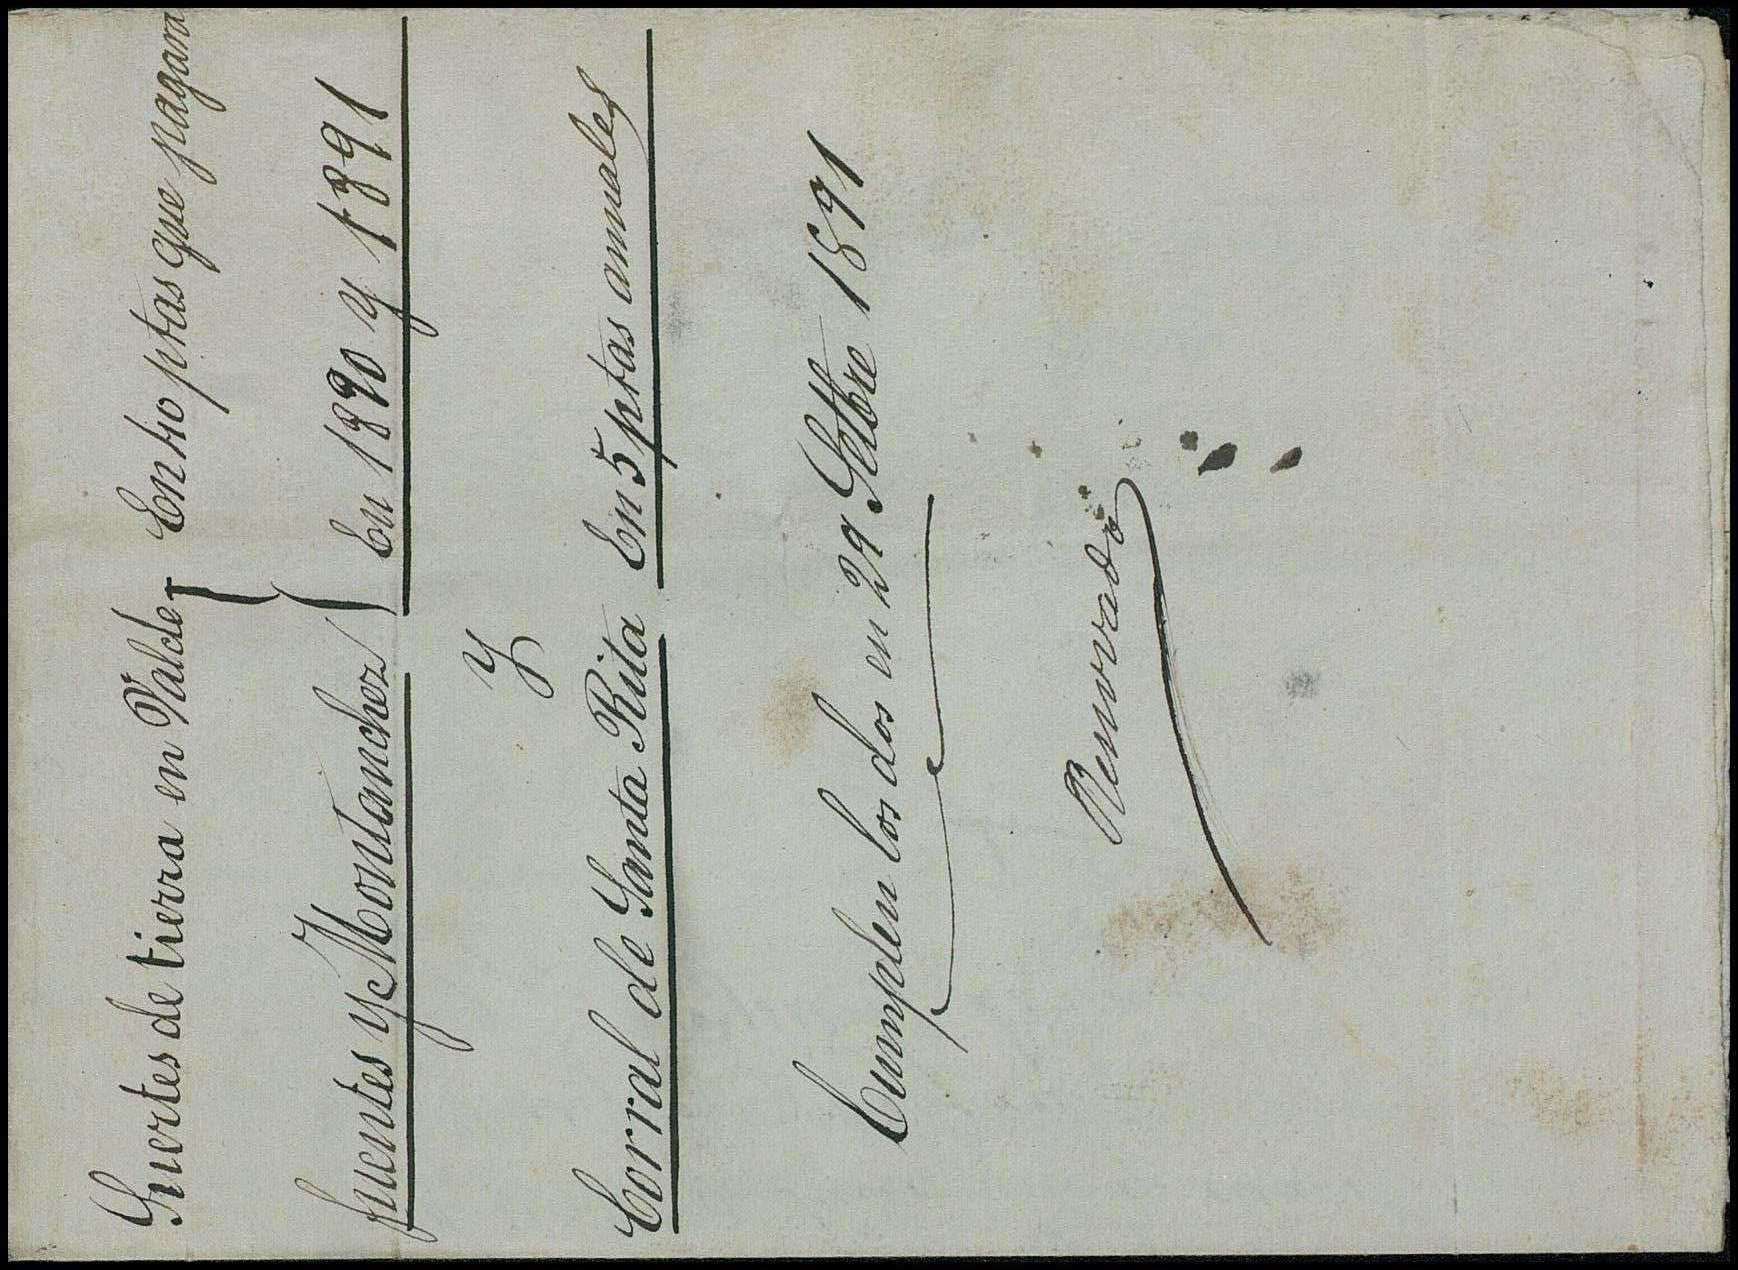 Suertes de tierra en Valde- } En 40 ptas que pagara
fuentes y Montanchez } en 1890 y 1891
y
Corral de Santa Rita En 5 ptas anuales
Cumplen los dos en 29 Setbre 1891
Renovado